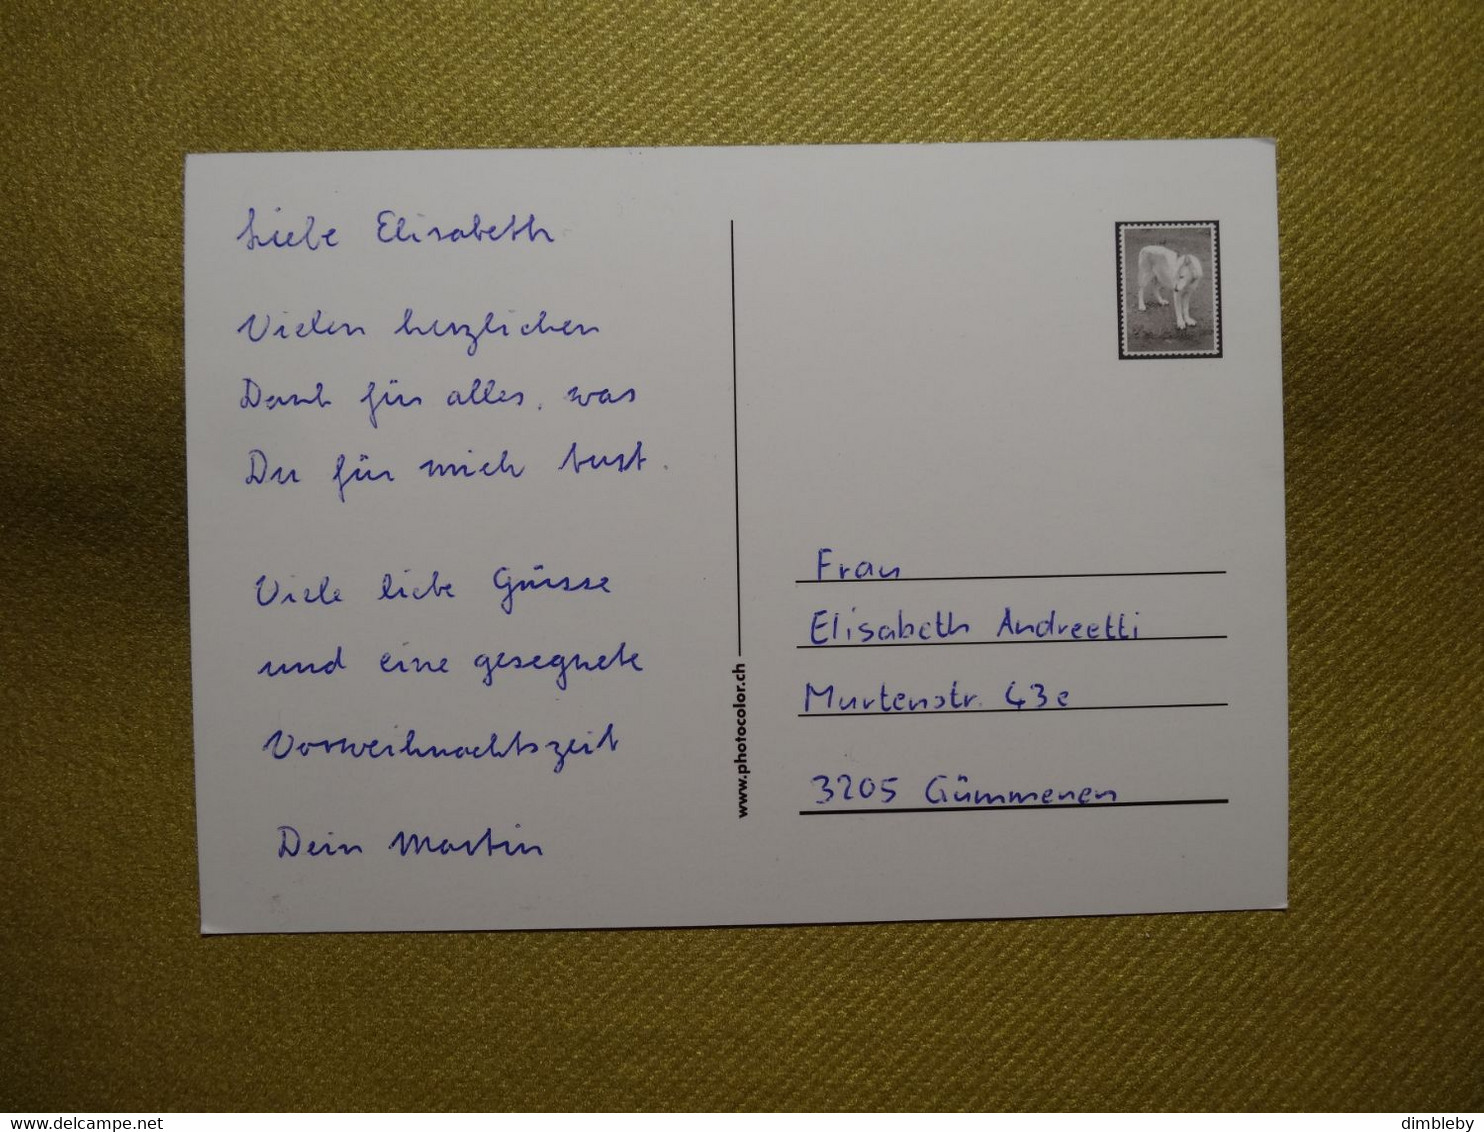 Liebe Elisabeth
Vielen herzlichen
Dank für alles, was
Du für mich tust.
Viele liebe Grüsse
und eine gesegnete
Vorweihnachtszeit
Dein Martin
www.photocolor.ch
Frau
Elisabeth Andreetti
Murtenstr. 43e
3205 Gümmenen
delcampe.net
dimbleby